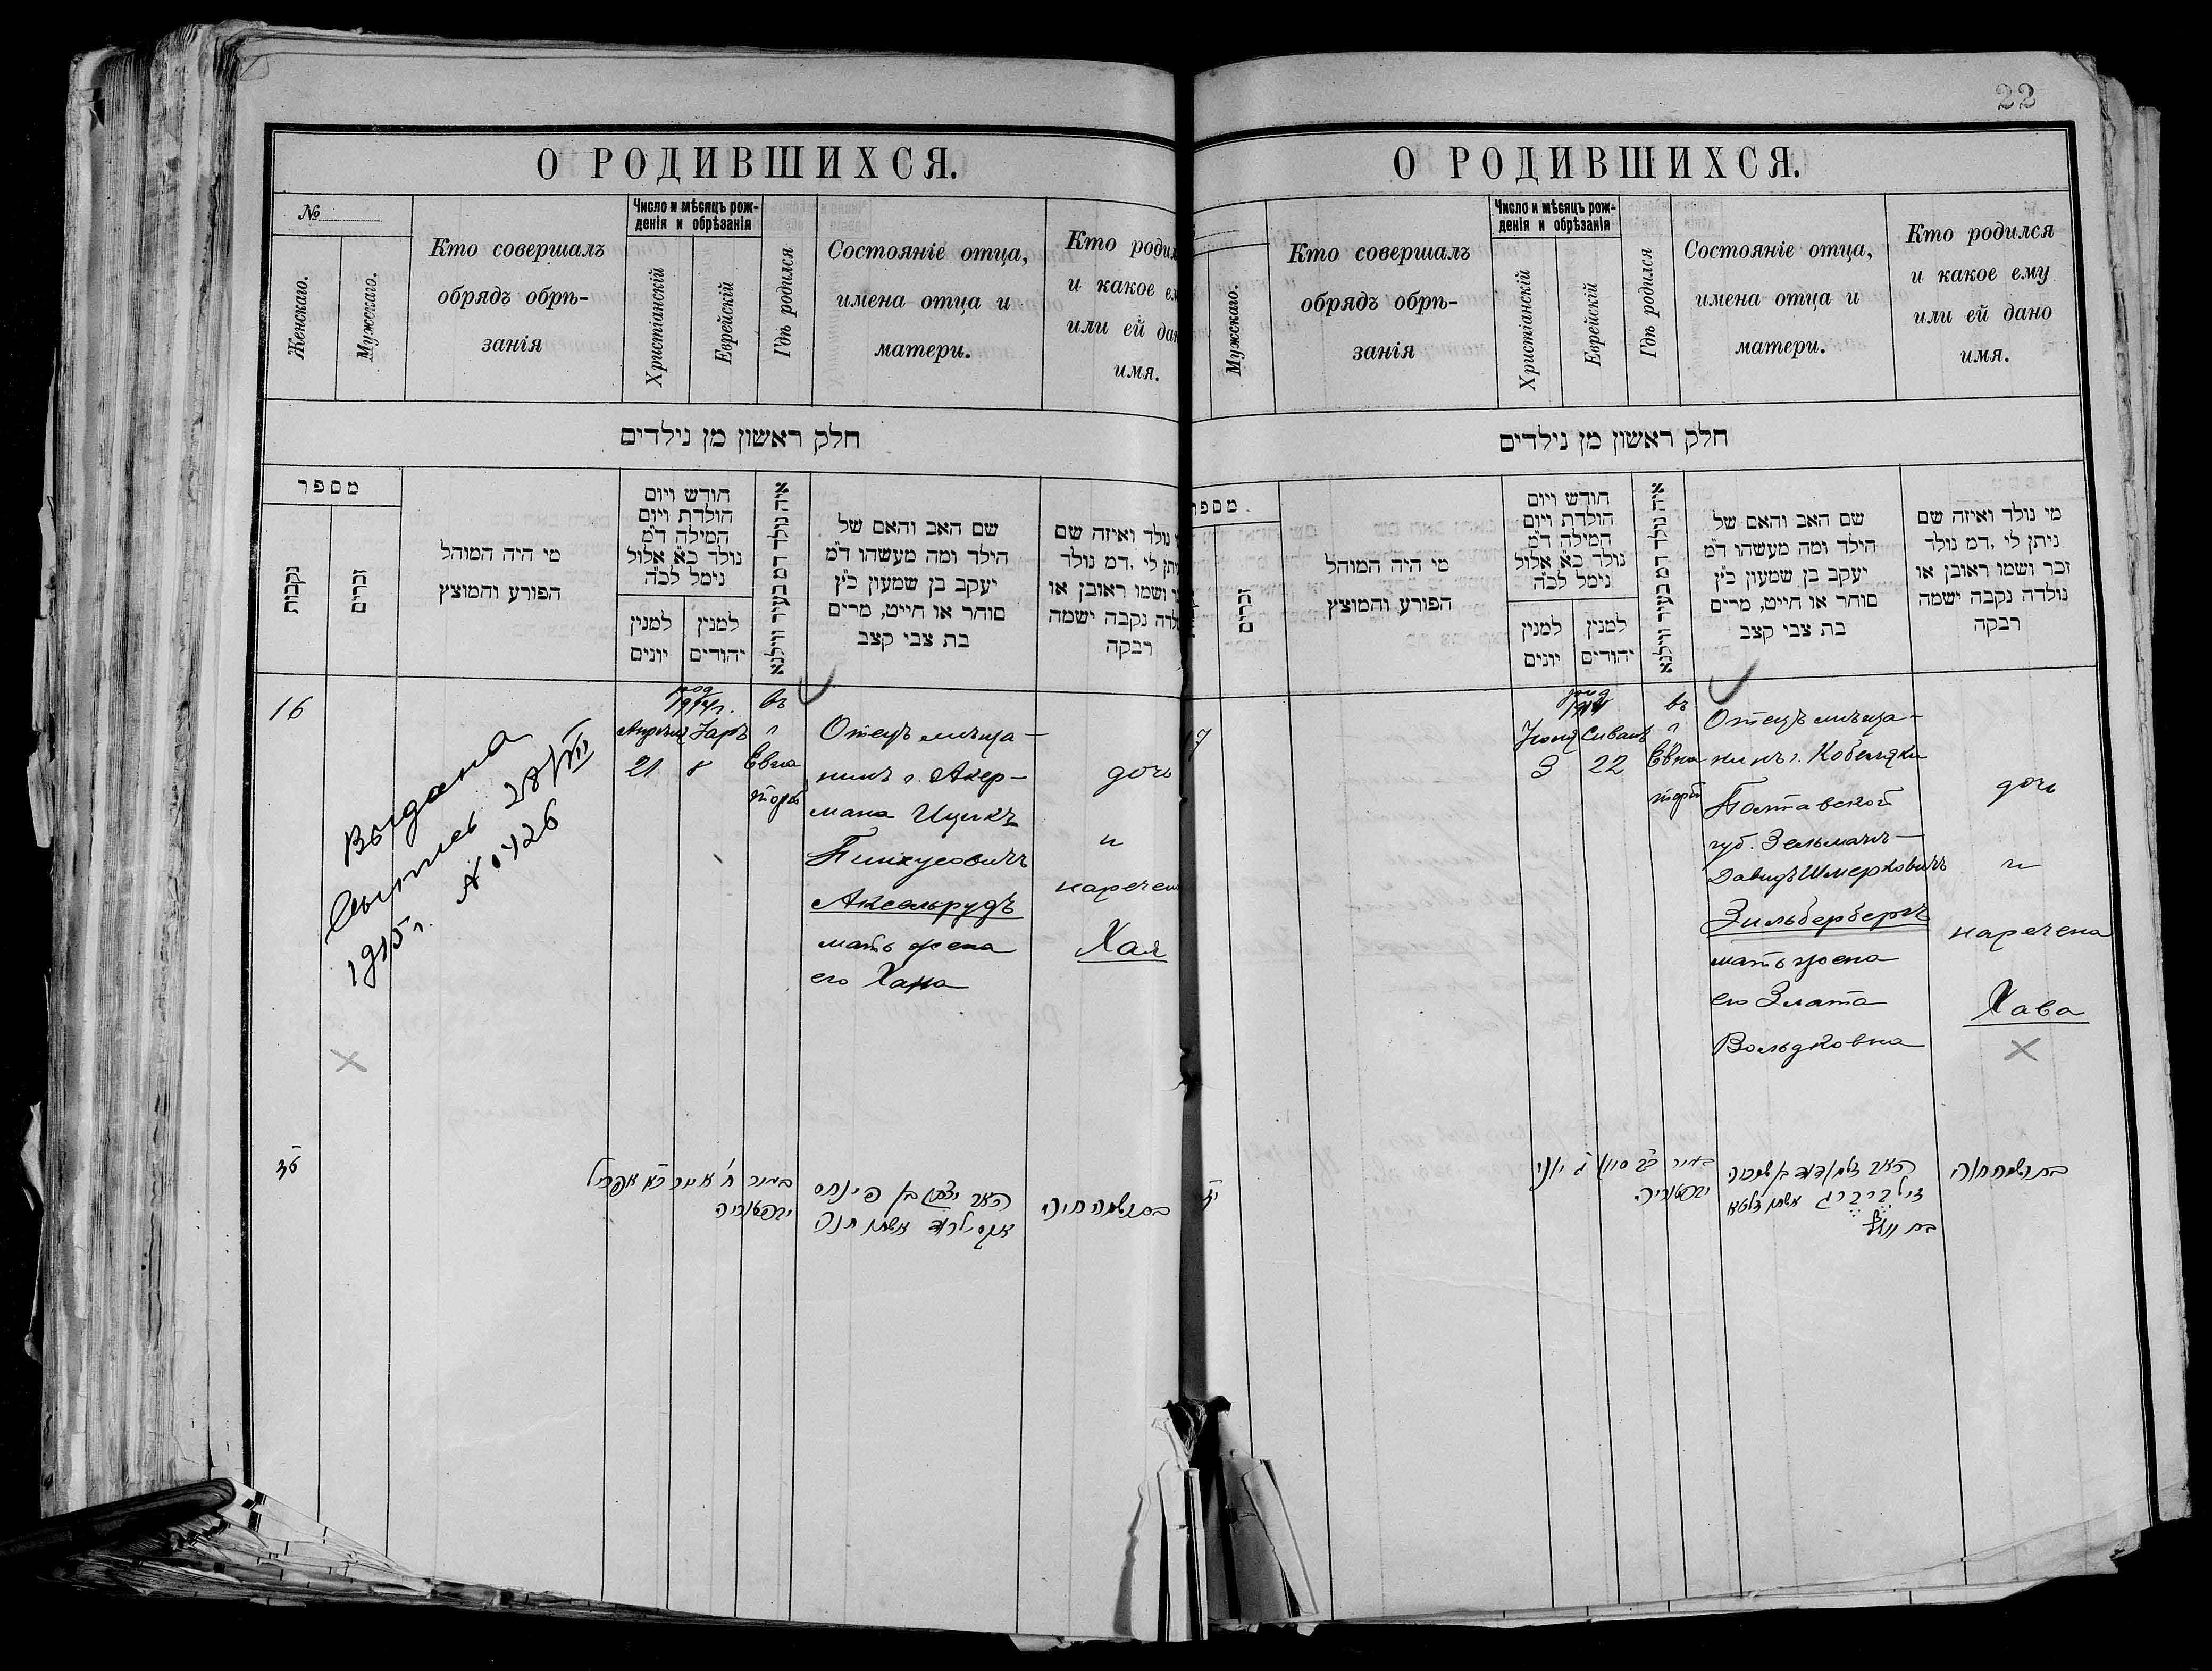 22
О РОДИВШИХСЯ.
№
Женскаго.
Мужскаго.
Кто совершалъ
обрядъ обрѣ-
занія
Число и мѣсяцъ рож-
денія и обрѣзанія
Христіанскій
Еврейскій
Гдѣ родился
Состояніе отца,
имена отца и
матери.
Кто родил
и какое ем
или ей дан
имя.
חלק ראשון מן נילדים
מספר
נקבות
זכרים
מי היה המוהל
הפורע והמוצץ
חודש ויום
הולדת ויום
המילה ד״מ
נולד כ״א אלול
נימל לכ״ה
למנין
יונים
למנין
יהודים
איה נולד דמ בעיר ווילנא
שם האב והאם של
הילד ומה מעשהו ד״מ
יעקב בן שמעון כ״ץ
סוחר או חייט, מרים
בת צבי קצב
נולד ואיזה שם
יתן לי ,דמ נולד
ושמו ראובן או
לדה נקבה ישמה
רבקה
16
Выдана
1915 г. № 426
28/VII
род
1914 г.
Апрѣля Іаръ
21 8
въ
г
Евпа
торіи
Отецъ мѣща-
нинъ г. Акер-
мана Ицикъ
Пинхусовичъ
Аксельрудъ
мать жена
его Хана
дочь
и
наречен
Хая
×
במיר ח׳ אייר כ״א אפריל
יבפטוריה
האב יצחק בן פינחס
אקסילרוד אשתו חנה
בת ושמה חיה
О РОДИВШИХСЯ.
Мужскаго.
Кто совершалъ
обрядъ обрѣ-
занія
Число и мѣсяцъ рож-
денія и обрѣзанія
Христіанскій
Еврейскій
Гдѣ родился
Состояніе отца,
имена отца и
матери.
Кто родился
и какое ему
или ей дано
имя.
חלק ראשון מן נילדים
מספר
זכרים
מי היה המוהל
הפורע והמוצץ
חודש ויום
הולדת ויום
המילה ד״מ
נולד כ״א אלול
נימל לכ״ה
למנין
יונים
למנין
יהודים
איה נולד דמ בעיר ווילנא
שם האב והאם של
הילד ומה מעשהו ד״מ
יעקב בן שמעון כ״ץ
סוחר או חייט, מרים
בת צבי קצב
מי נולד ואיזה שם
ניתן לי ,דמ נולד
זכר ושמו ראובן או
נולדה נקבה ישמה
רבקה
7
род
1914
Іюня Сиванъ
3 22
въ
г
Евпа
торіи
Отецъ мѣща-
нинъ г. Кобеляки
Полтавской
губ. Зельманъ-
Давидъ Шмерковичъ
Зильбербергъ
мать жена
его Злата
Вольдковна
дочь
и
наречена
Хава
×
במיר כ״ב סיון ג׳ יוני
יבפטוריה
האב זלמן דוד בן שמריה
זילברברג אשתו זלטא
בת וואלף
בת ושמה חוה